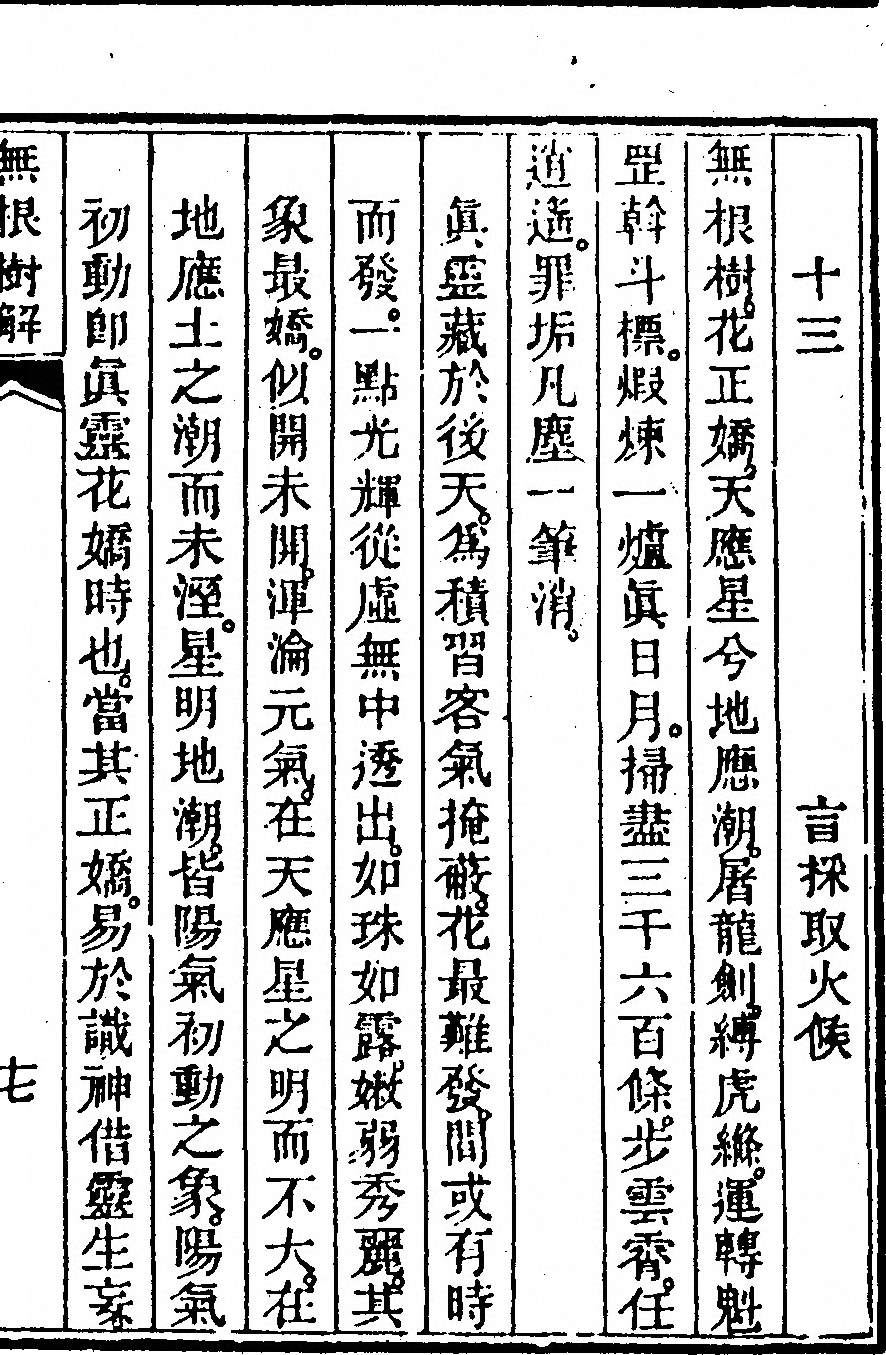 十三　　　　　　　　言採取火候
無根樹。花正嬌。天應星兮地應潮。屠龍劍。縛虎縧。運轉魁
罡斡斗標。煅煉一爐眞日月。掃盡三千六百條。步雲霄。任
逍遙。罪垢凡塵一筆消。
眞靈藏於後天。爲積習客氣掩蔽。花最難發。間或有時
而發。一點光輝從虛無中透出。如珠如露。嫩弱秀麗。其
象最嬌。似開未開。渾淪元氣。在天應星之明而不大。在
地應土之潮而未溼。星明地潮。皆陽氣初動之象。陽氣
初動卽眞靈花嬌時也。當其正嬌。易於識神借靈生妄
無根樹解
七